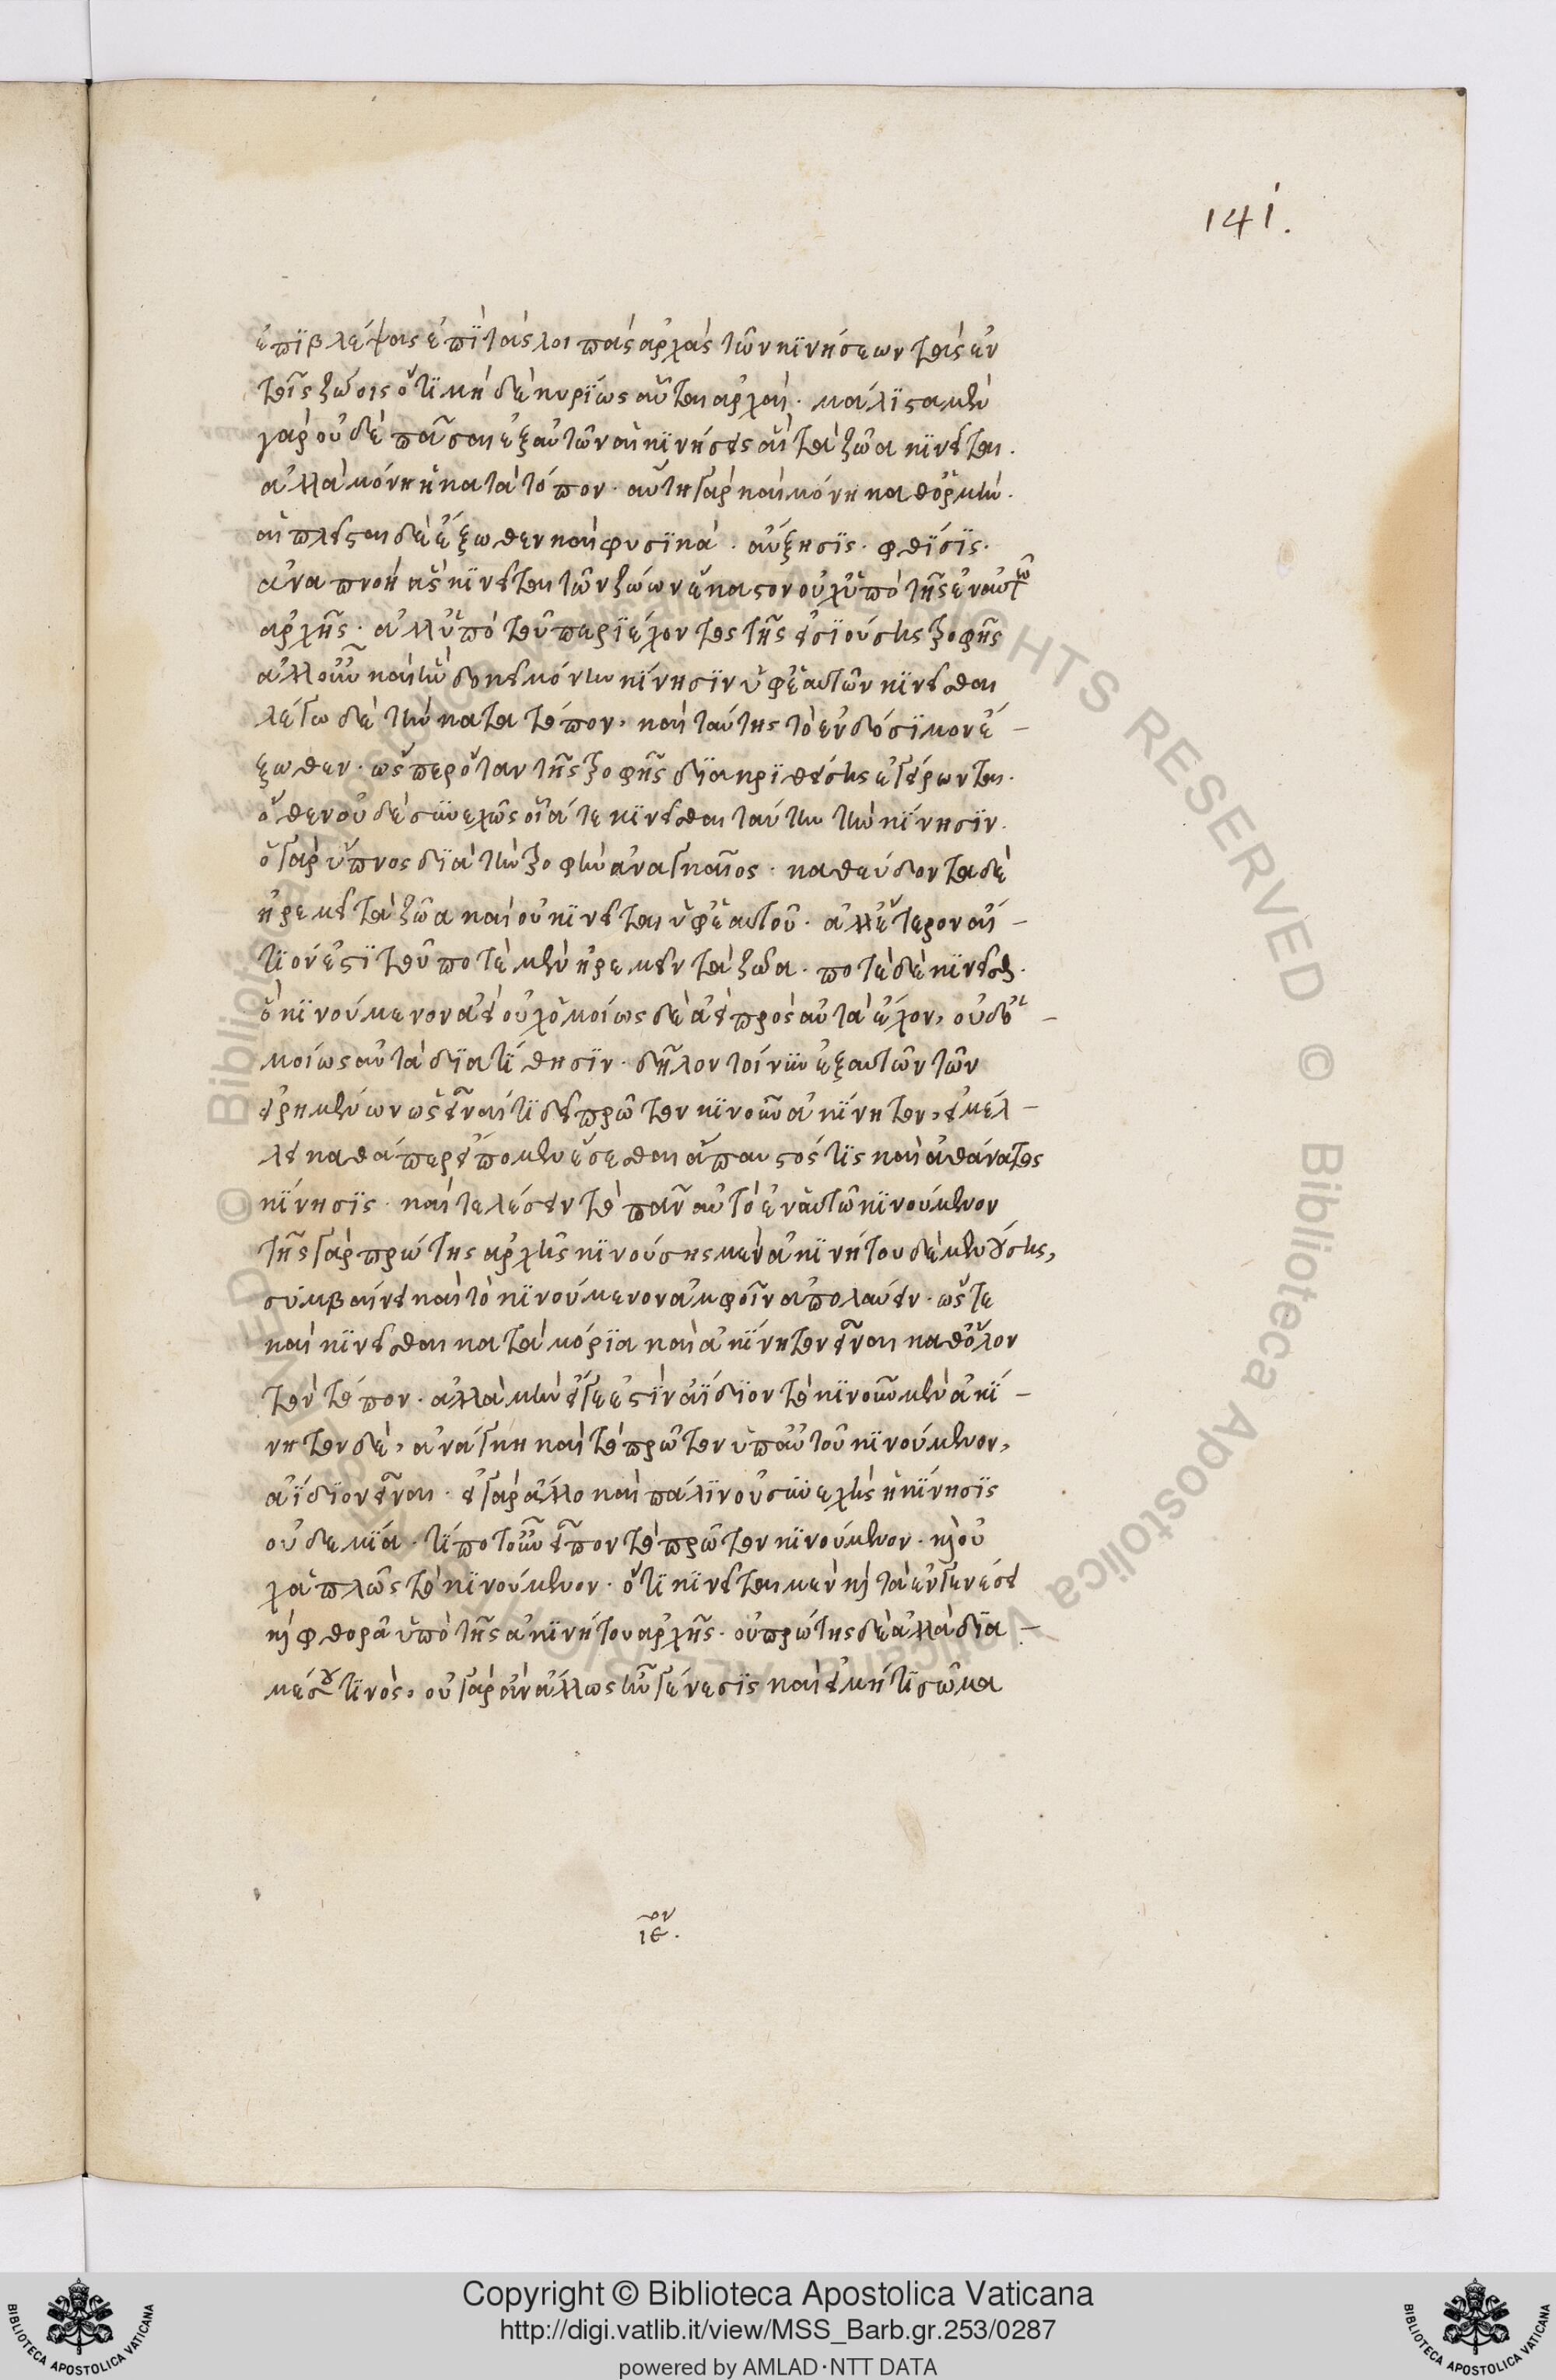 141.
ἐπϊβλέψας ἐπῒ τὰς λοιπὰς ἀρχὰς τῶν κϊνήσεων τὰς ἐν
τοῖς ζώοις ὅτϊ μὴ δὲ κυρΐως αὗται ἀρχαί. μάλϊστα μὲν
γὰρ οὐδὲ πᾶσαι ἐξ αὐτῶν αἱ κϊνήσεις ἃς τὰ ζῶα κϊνεῖται.
ἀλλὰ μόνη ἡ κατὰ τόπον. αὕτη γὰρ καὶ μόνη καθ' ὁρμήν.
αἱ πλεῖσται δὲ ἔξωθεν καὶ φυσϊκά. αὔξησϊς. φθΐσϊς.
ἀναπνοὴ ἃς κϊνεῖται τῶν ζώων ἕκαστον οὐχ ὑπὸ τῆς ἐν αὐτῶ
ἀρχῆς. ἀλλ' ὑπὸ τοῦ περϊέχοντος τῆς εἰσϊούσης τροφῆς
ἀλλ' οὖν καὶ ἣν δοκεῖ μόνην κΐνησϊν ὑφ' ἑαυτῶν κϊνεῖσθαι
λέγω δὲ τὴν κατὰ τόπον, καὶ ταύτης τὸ ἐνδόσϊμον ἔ-
ξωθεν. ὥσπερ ὅταν τῆς τροφῆς δϊακρϊθείσης ἐγείρωνται.
ὅθεν οὐδὲ συνεχῶς οἷά τε κϊνεῖσθαι ταύτην τὴν κΐνησϊν.
ὁ γὰρ ὕπνος δϊὰ τὴν τροφὴν ἀναγκαῖος. καθεύδοντα δὲ
ἠρεμεῖ τὰ ζῶα καὶ οὐ κϊνεῖται ὑφ' ἑαυτοῦ. ἀλλ' ἕτερον αἴ-
τϊόν ἐστϊ τοῦ ποτὲ μὲν ἠρεμεῖν τὰ ζῶα. ποτὲ δὲ κϊνεῖσθαι.
ὃ κϊνούμενον ἀεὶ οὐχ ὁμοίως δὲ ἀεὶ πρὸς αὐτὰ ἔχον, οὐδ' ὁ-
μοίως αὐτὰ δϊατΐθησϊν. δῆλον τοίνυν ἐξ αὐτῶν τῶν
εἰρημένων ὡς εἶναί τϊ δεῖ πρῶτον κϊνοῦν ἀκΐνητον, εἰ μέλ-
λει καθάπερ εἴπομεν ἔσεσθαι ἄπαυστός τϊς καὶ ἀθάνατος
κΐνησϊς. καὶ τελέσειν τὸ πᾶν αὐτὸ ἐν αὑτῶ κϊνούμενον
τῆς γὰρ πρώτης ἀρχῆς κϊνούσης μὲν ἀκϊνήτου δὲ μενούσης,
συμβαίνει καὶ τὸ κϊνούμενον ἀμφοῖν ἀπολαύειν. ὥστε
καὶ κϊνεῖσθαι κατὰ μόρϊα καὶ ἀκΐνητον εἶναι καθ' ὅλον
τὸν τόπον. ἀλλὰ μὴν εἴγε ἐστϊν ἀΐδϊον τὸ κϊνοῦν μὲν ἀκΐ-
νητον δὲ, ἀνάγκη καὶ τὸ πρῶτον ὑπ' αὐτοῦ κϊνούμενον,
ἀΐδϊον εἶναι. εἰ γὰρ ἄλλο καὶ πάλϊν οὐ συνεχὴς ἡ κΐνησϊς
οὐδεμϊά. τΐ ποτ' οὖν εἶπον τὸ πρῶτον κϊνούμενον. καὶ οὐ
χ' ἁπλῶς τὸ κϊνούμενον. ὅτϊ κϊνεῖται μὲν καὶ τὰ ἐν γενέσει
καὶ φθορᾶ ὑπὸ τῆς ἀκϊνήτου ἀρχῆς. οὐ πρώτης δὲ ἀλλὰ δϊὰ
μέσου τϊνὸς, οὐ γὰρ ἂν ἄλλως ἦν γένεσϊς καὶ εἰ μή τϊ σῶμα
ιε<sup>ον</sup>.
Copyright © Biblioteca Apostolica Vaticana
http://digi.vatlib.it/view/MSS_Barb.gr.253/0287
powered by AMLAD·NTT DATA